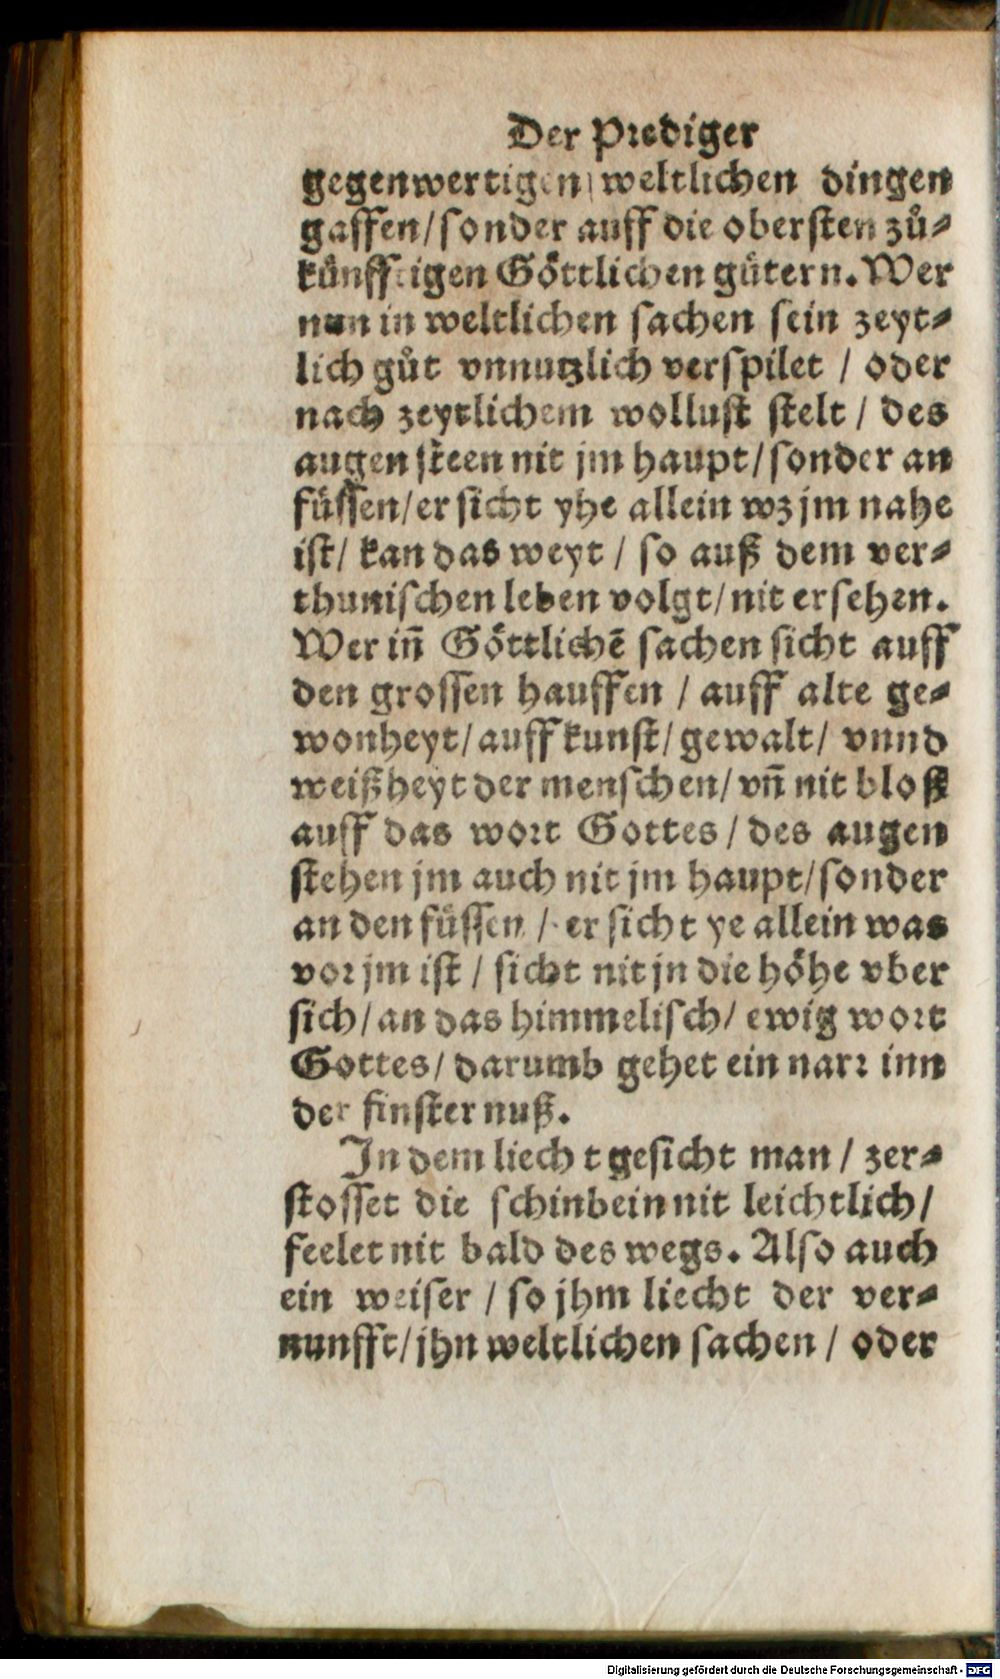 Der Prediger
gegenwertigen weltlichen dingen
gaffen/sonder auff die obersten zuͦ⸗
kuͤnfftigen Goͤttlichen guͤtern. Wer
nun in weltlichen sachen sein zeyt⸗
lich guͦt vnnutzlich verspilet / oder
nach zeytlichem wollust stelt / des
augen steen nit jm haupt/sonder an
fuͤssen/er sicht yhe allein wz jm nahe
ist/ kan das weyt / so auß dem ver⸗
thunischen leben volgt/nit ersehen.
Wer in̄ Goͤttlichē sachen sicht auff
den grossen hauffen / auff alte ge⸗
wonheyt/auff kunst/gewalt/ vnnd
weißheyt der menschen/vn̄ nit bloß
auff das wort Gottes / des augen
stehen jm auch nit jm haupt/sonder
an den fuͤssen / er sicht ye allein was
vor jm ist / sicht nit jn die hoͤhe vber
sich/an das himmelisch/ ewig wort
Gottes/ darumb gehet ein narr inn
der finsternuß.
In dem liecht gesicht man / zer⸗
stosset die schinbein nit leichtlich/
feelet nit bald des wegs. Also auch
ein weiser / so jhm liecht der ver⸗
nunfft/jhn weltlichen sachen / oder
Digitalisierung gefördert durch die Deutsche Forschungsgemeinschaft - DFG